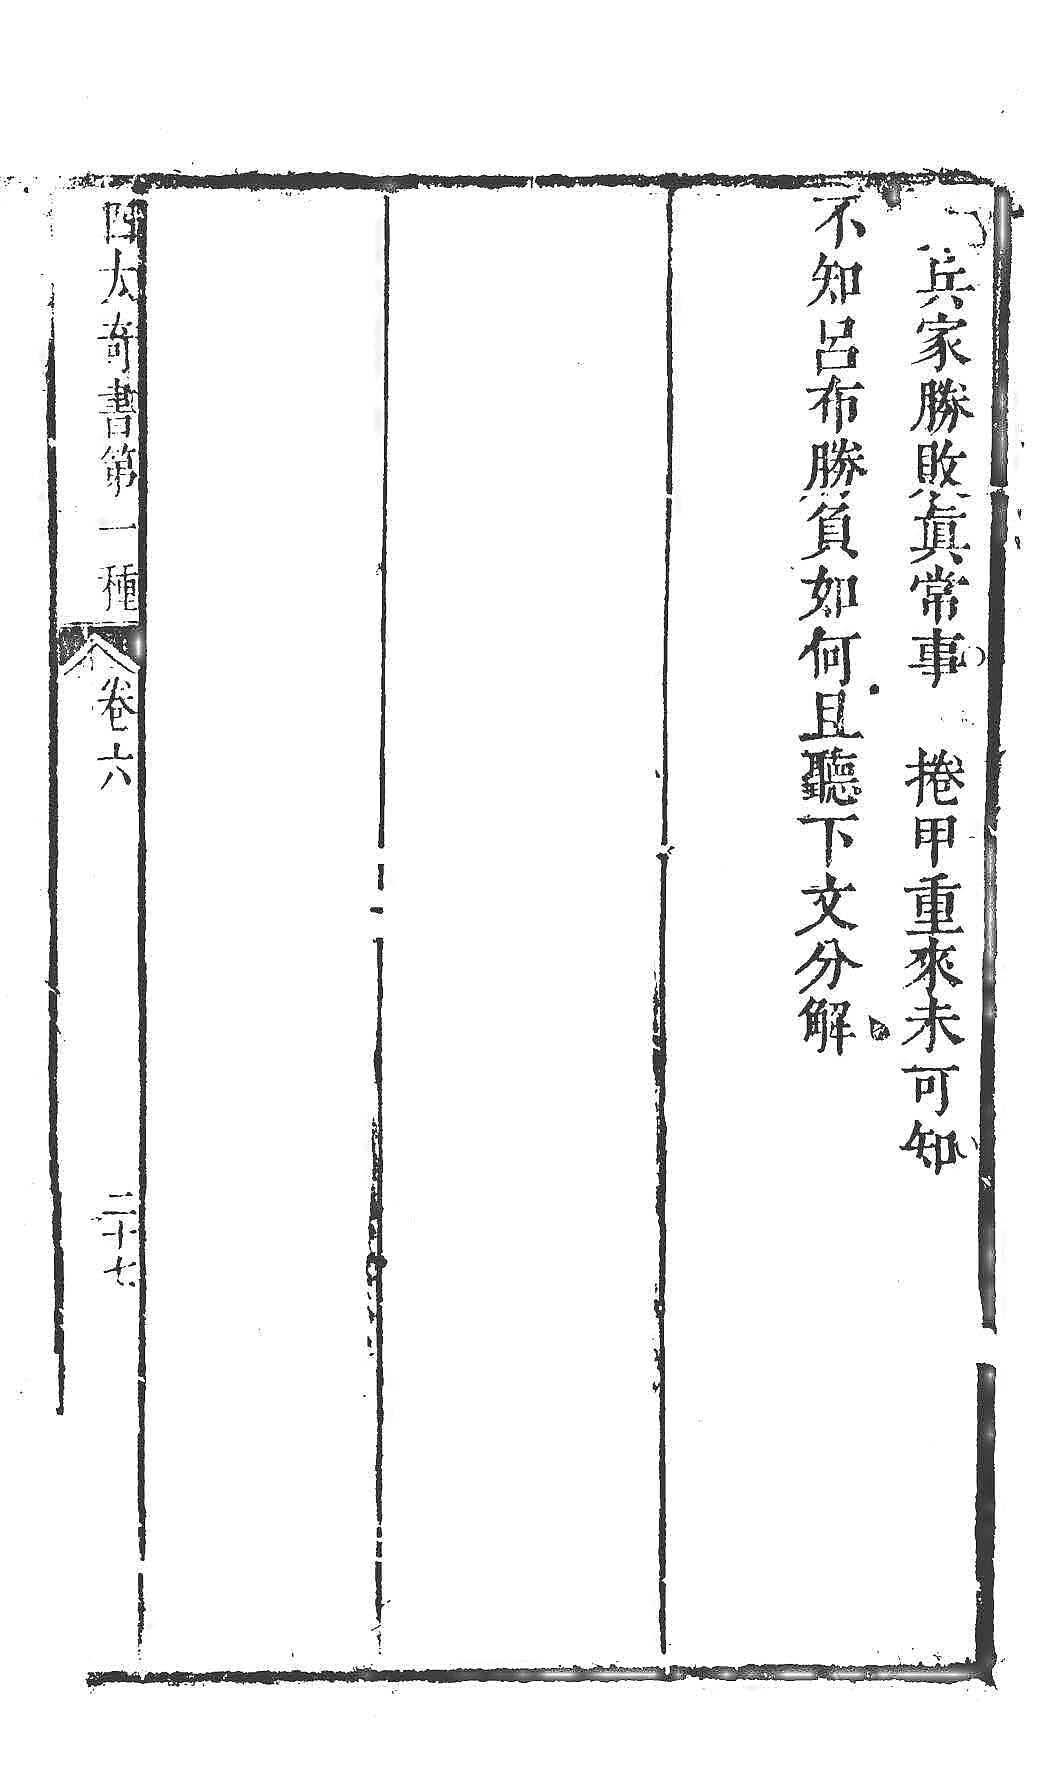 兵家勝敗眞常事　捲甲重來未可知
不知呂布勝負如何且聽下文分解
四大奇書第一種
卷六
二十七